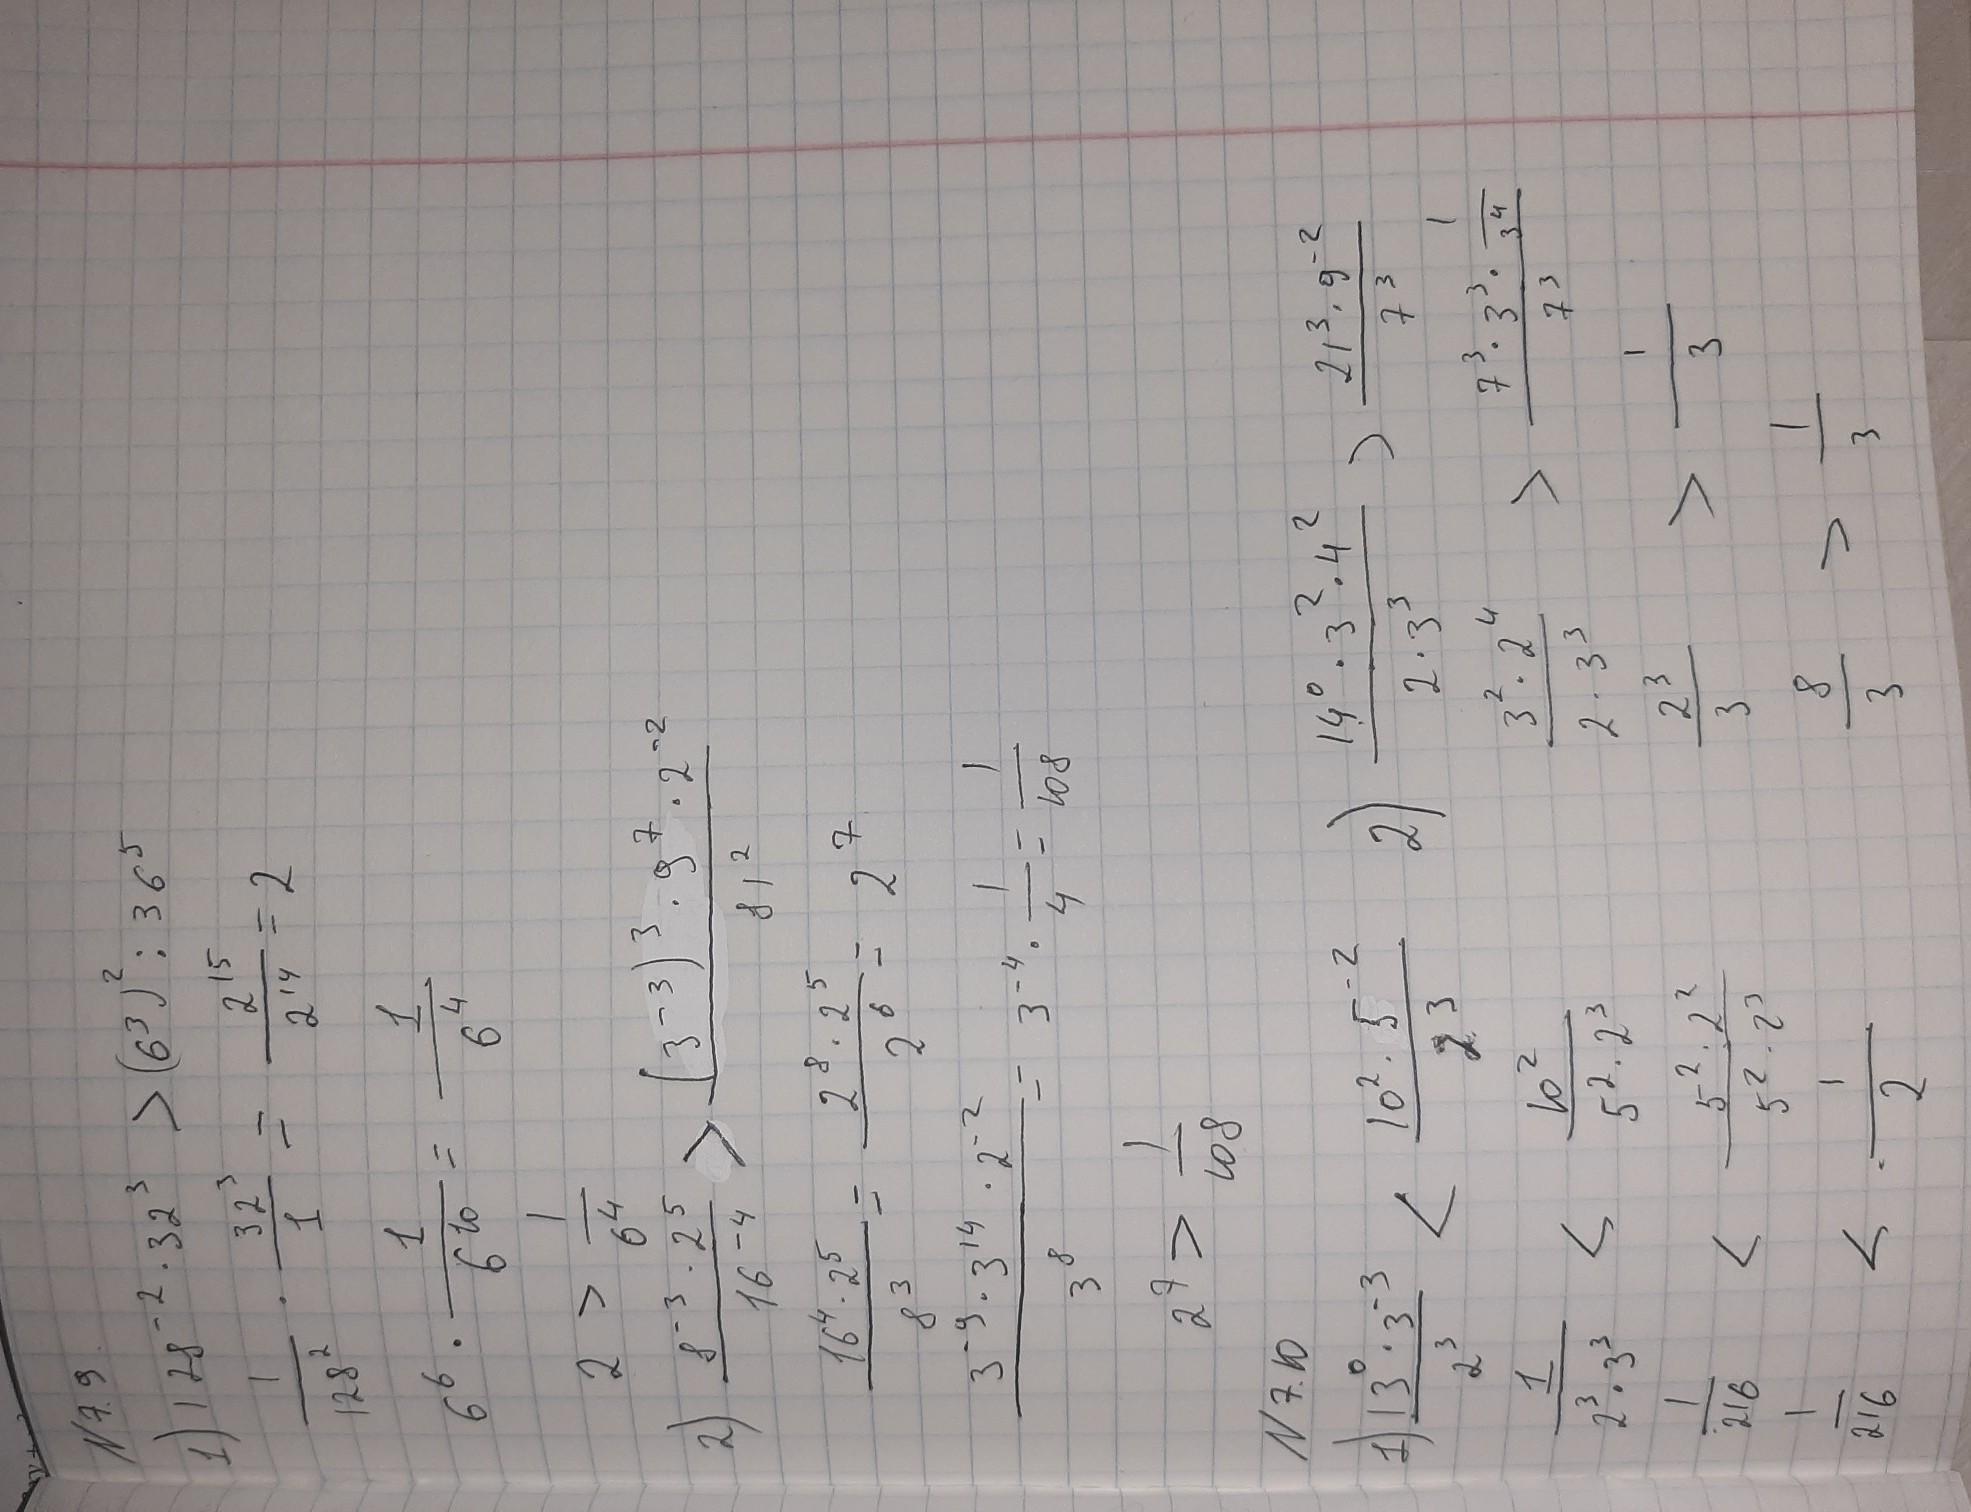 N 7.9.
1) 128^{-2} · 32^3 > (6^3)^2 : 36^5
\frac{1}{128^2} · \frac{32^3}{1} = \frac{2^{15}}{2^{14}} = 2
6^6 · \frac{1}{6^{10}} = \frac{1}{6^4}
2 > \frac{1}{6^4}
2) \frac{8^{-3} · 2^5}{16^{-4}} > \frac{(3^{-3})^3 · 9^7 · 2^{-2}}{81^2}
\frac{16^4 · 2^5}{8^3} = \frac{2^8 · 2^5}{2^6} = 2^7
\frac{3^{-9} · 3^{14} · 2^{-2}}{3^8} = 3^{-4} · \frac{1}{4} = \frac{1}{108}
2^7 > \frac{1}{108}
N 7.10
1) \frac{13^0 · 3^{-3}}{2^3} < \frac{10^2 · 5^{-2}}{2^3}
\frac{1}{2^3 · 3^3} < \frac{10^2}{5^2 · 2^3}
\frac{1}{216} < \frac{5^2 · 2^2}{5^2 · 2^3}
\frac{1}{216} < \frac{1}{2}
2) \frac{14^0 · 3^2 · 4^2}{2 · 3^3} > \frac{21^3 · 9^{-2}}{7^3}
\frac{3^2 · 2^4}{2 · 3^3} > \frac{7^3 · 3^3 · \frac{1}{3^4}}{7^3}
\frac{2^3}{3} > \frac{1}{3}
\frac{8}{3} > \frac{1}{3}